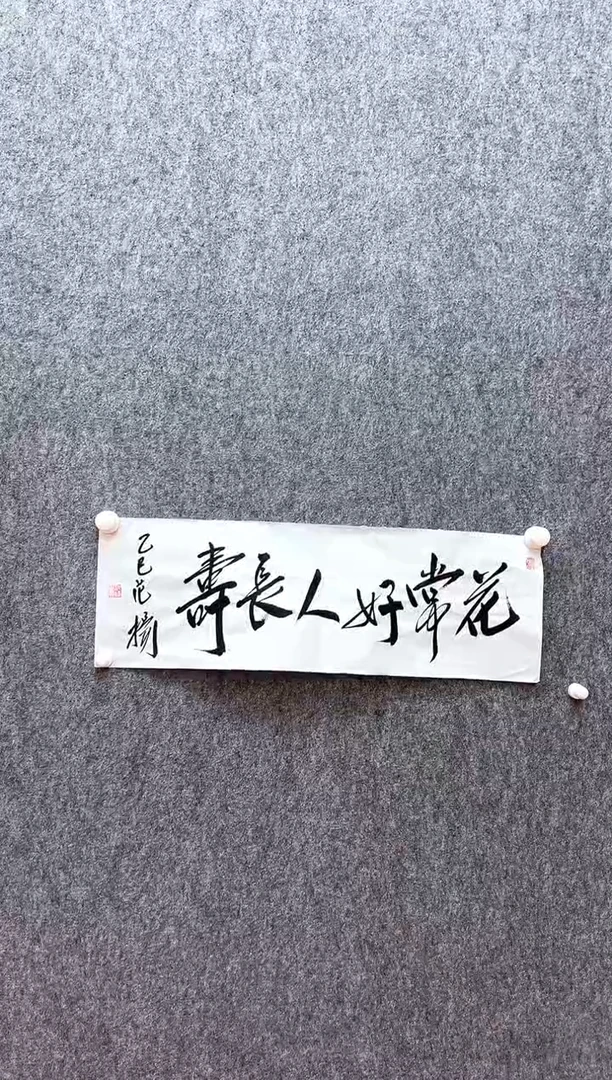 花常好人長壽
乙巳范楊